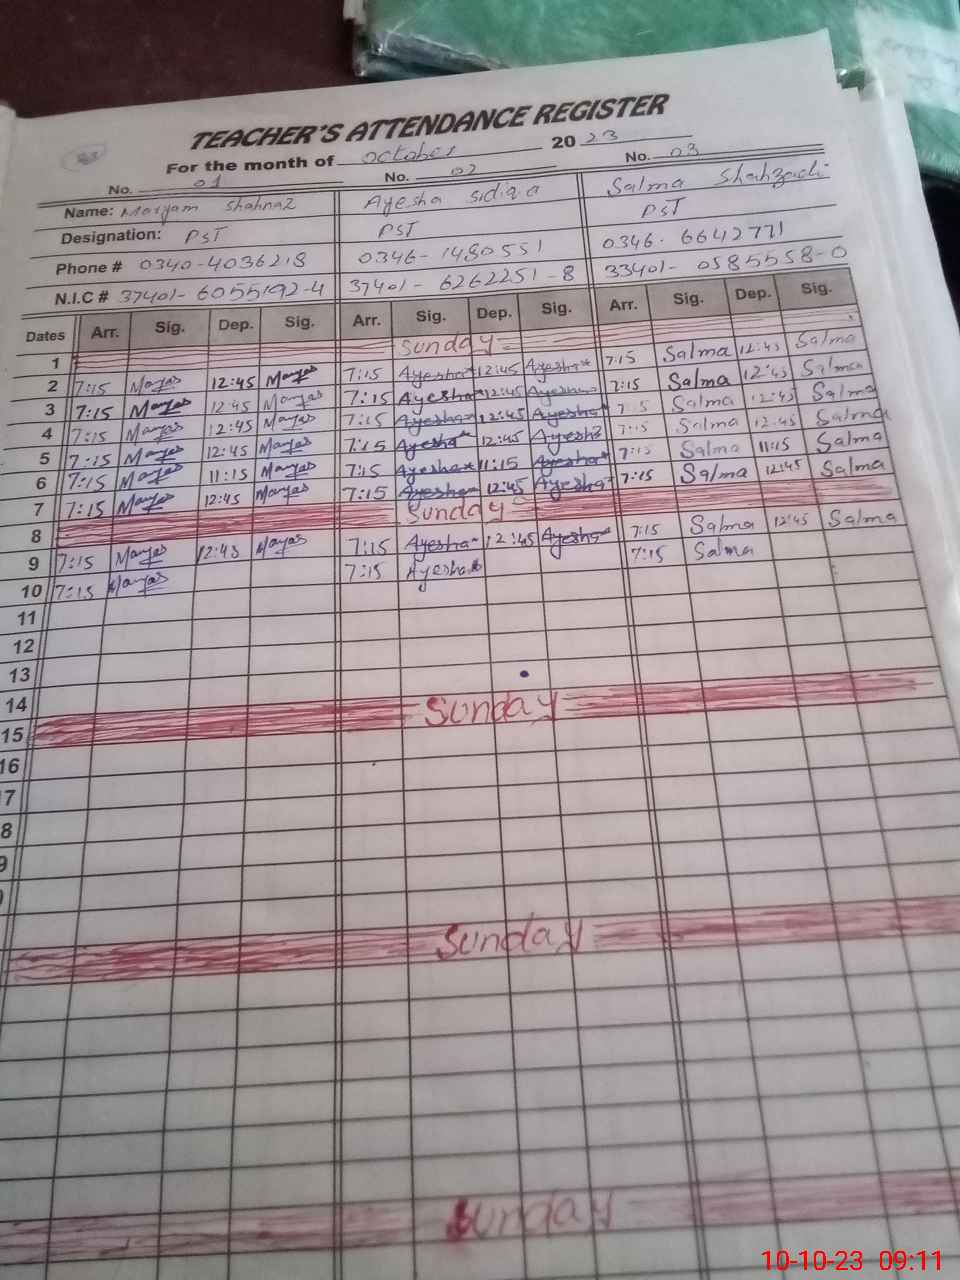 TEACHER'S ATTENDANCE REGISTER
For the month of October 2023
No. 01 No. 02 No. 03
Name: Maryam Shahnaz Ayesha Sidiqa Salma Shahzadi
Designation: PST PST PST
Phone # 0340-4036218 0346-1480551 0346-6642771
N.I.C # 37401-6055192-4 37401-6262251-8 33401-0585558-0
Dates Arr. Sig. Dep. Sig. Arr. Sig. Dep. Sig. Arr. Sig. Dep. Sig.
1 Sunday
2 7:15 Maryam 12:45 Maryam 7:15 Ayesha 12:45 Ayesha 7:15 Salma 12:45 Salma
3 7:15 Maryam 12:45 Maryam 7:15 Ayesha 12:45 Ayesha 7:15 Salma 12:45 Salma
4 7:15 Maryam 12:45 Maryam 7:15 Ayesha 12:45 Ayesha 7:15 Salma 12:45 Salma
5 7:15 Maryam 12:45 Maryam 7:15 Ayesha 12:45 Ayesha 7:15 Salma 12:45 Salma
6 7:15 Maryam 11:15 Maryam 7:15 Ayesha 11:15 Ayesha 7:15 Salma 11:15 Salma
7 7:15 Maryam 12:45 Maryam 7:15 Ayesha 12:45 Ayesha 7:15 Salma 12:45 Salma
8 Sunday
9 7:15 Maryam 12:45 Maryam 7:15 Ayesha 12:45 Ayesha 7:15 Salma 12:45 Salma
10 7:15 Maryam 7:15 Ayesha 7:15 Salma
11
12
13
14
15 Sunday
16
7
8
9
Sunday
Sunday
10-10-23 09:11